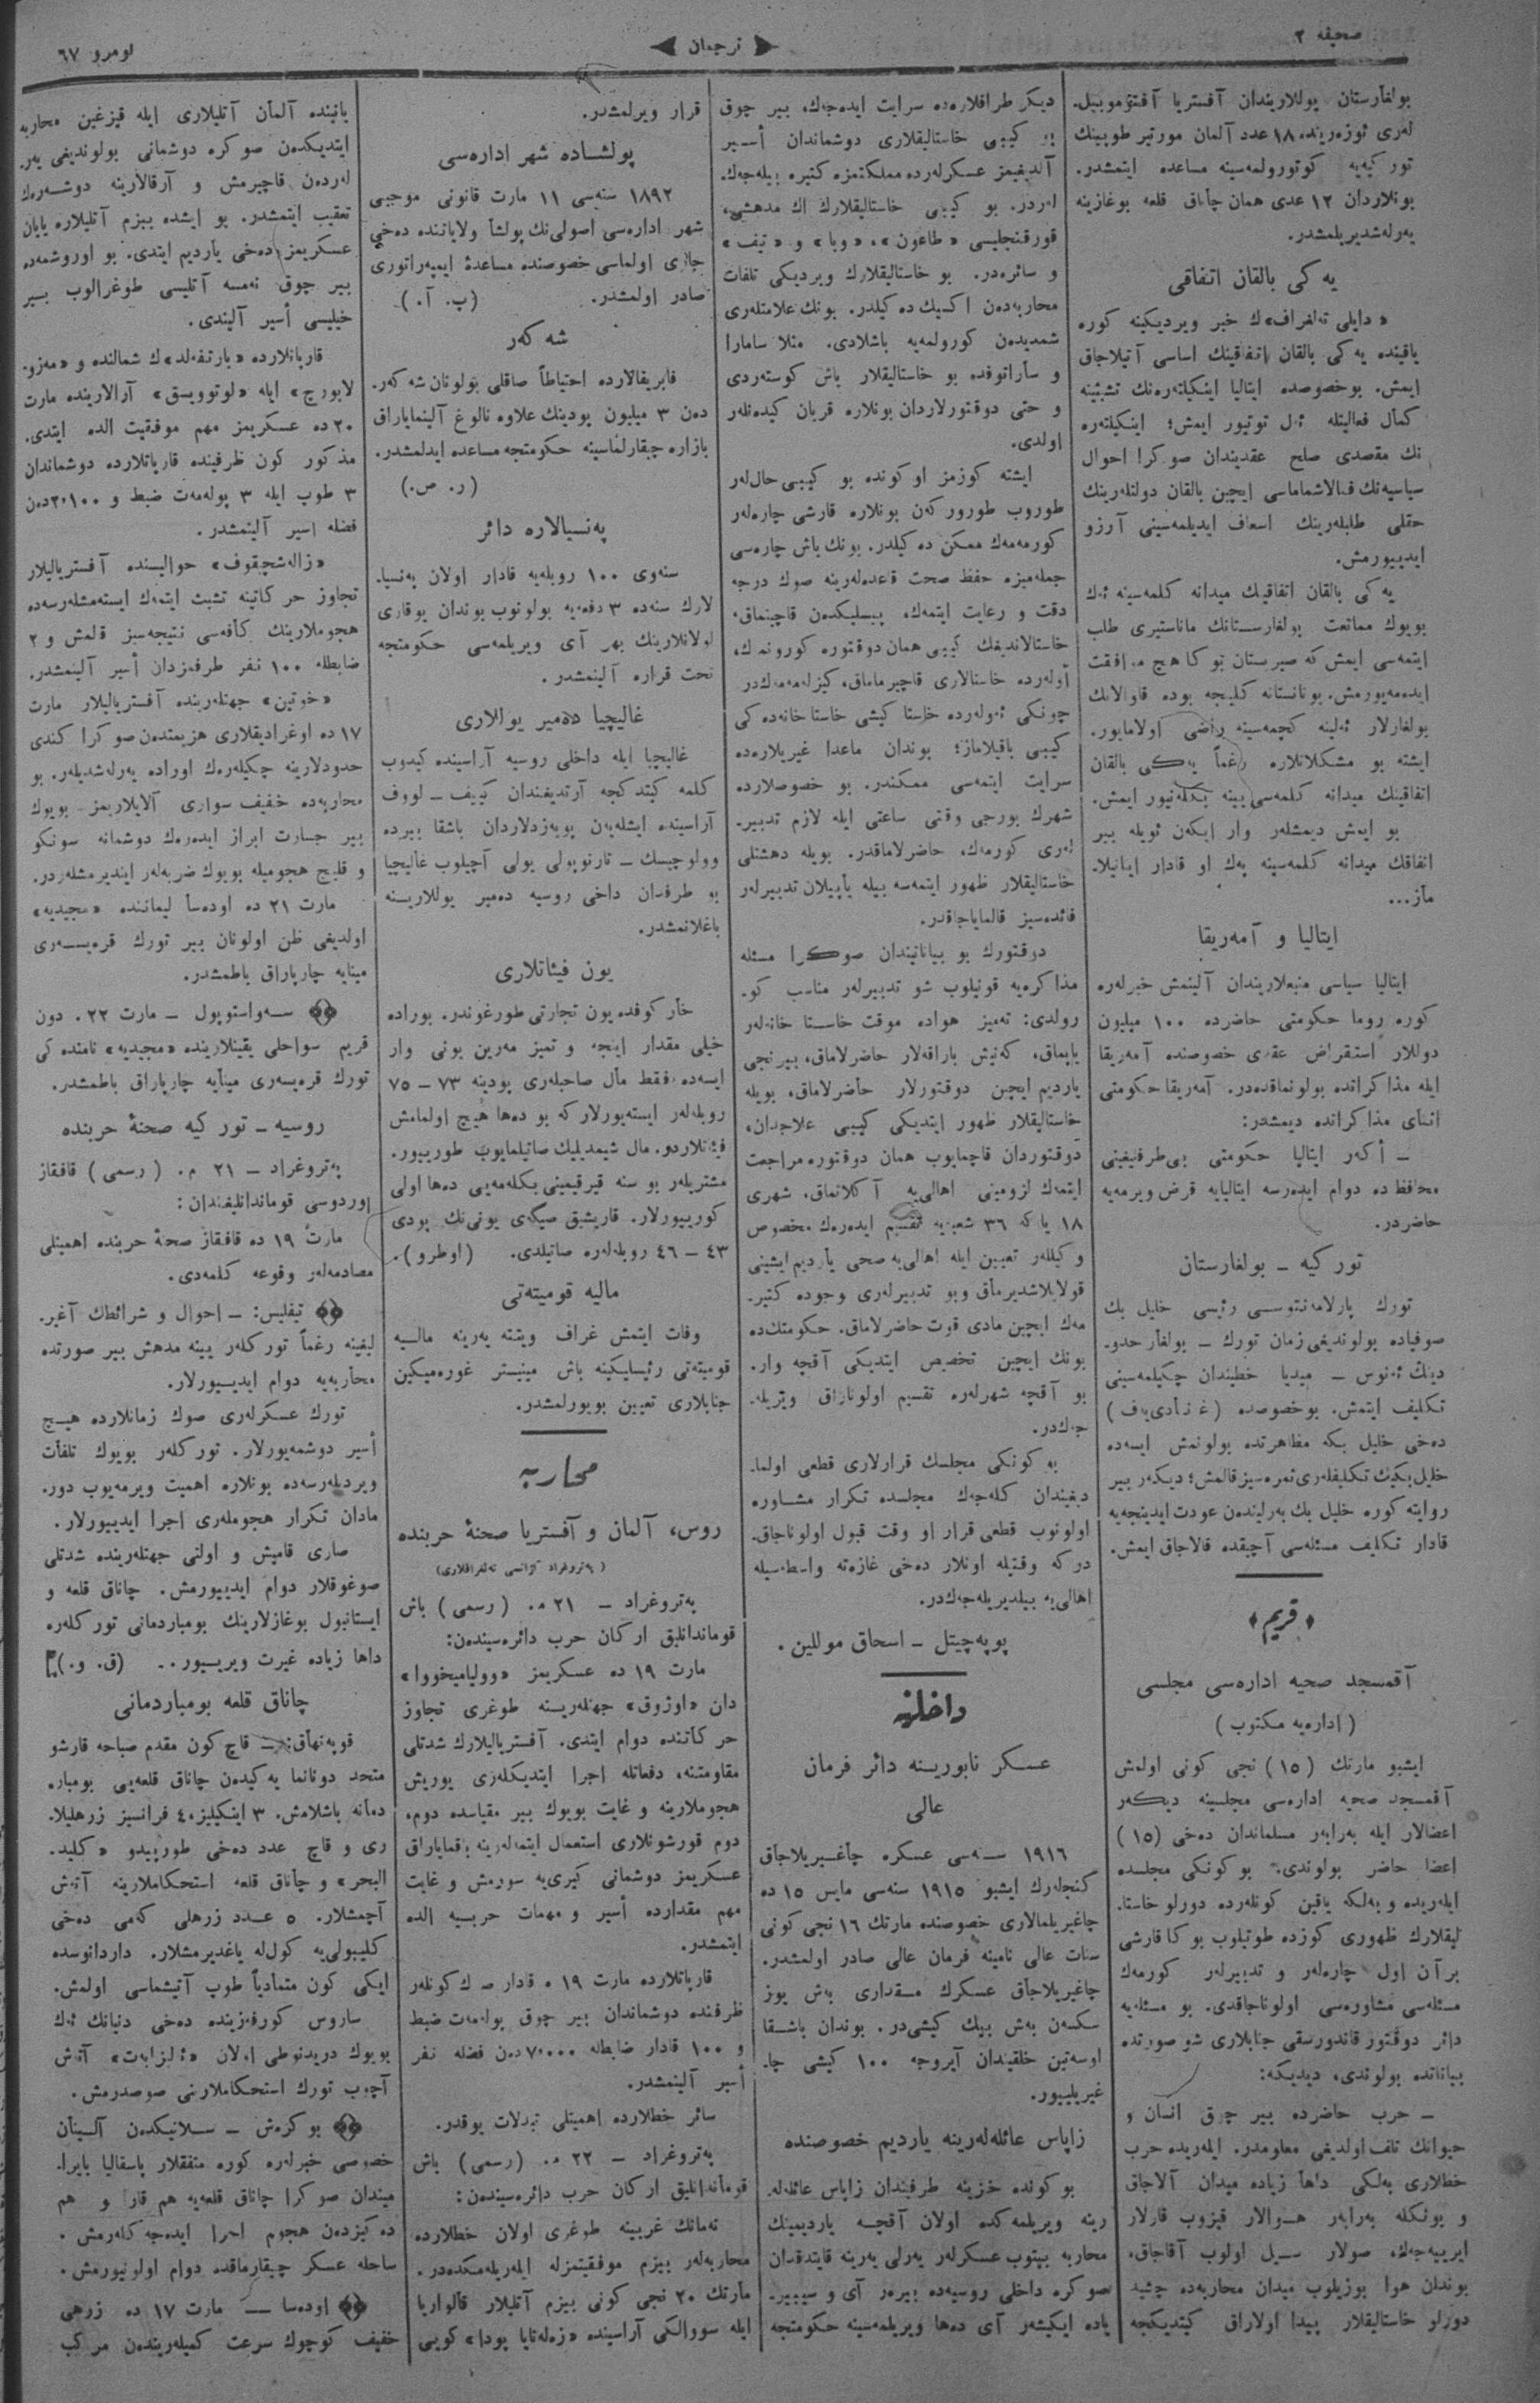 صحیفه ۲
ترجمان
نومرو ٦٧
بولغارستان یوللاریندان آفستریا آفتوموبیل-
لەری ئوزەرینده ١٨ عدد آلمان مورتیر طوپینك
تورکیەیه کوتورولمەسینه مساعده ایتمشدر.
بونلاردان ١٢ عدی همان چاناق قلعه بوغازینه
یەرلەشدیریلمشدر.
یەکی بالقان اتفاقی
«دایلی تەلغراف»ك خبر ویردیکینه کوره
یاقینده یەکی بالقان اتفاقینك اساسی آتیلاجاق
ایمش. بوخصوصده ایتالیا اینکیلتەرەنك تشبثینه
کمال فعالیتله ئەل توتیور ایمش؛ اینکیلتەره
نك مقصدی صلح عقدیندان صوکرا احوال
سیاسیەنك فنالاشماماسی ایچین بالقان دولتلەرینك
حقلی طلبلەرینك اسعاف ایدیلمەسینی آرزو
ایدییورمش.
یەکی بالقان اتفاقینك میدانه کلمەسینه ئەك
بویوك ممانعت بولغارستانك ماناستیری طلب
ایتمەسی ایمش که صیربستان بوکا هیچ موافقت
ایدەمەیورمش. یونانستانه کلیجه بوده قاوالانك
بولغارلار ئەلینه کچمەسینه راضی اولامایور.
ایشته بو مشکلاتلاره رغماً یەکی بالقان
اتفاقینك میدانه کلمەسی یینه بکلەنیور ایمش.
بو ایش دیمشلەر وار ایکەن ئویله بیر
اتفاقك میدانه کلمەسینه پەك او قادار اینانیلا-
ماز...
ایتالیا و آمەریقا
ایتالیا سیاسی منبعلاریندان آلینمش خبرلەره
کوره روما حکومتی حاضرده ١٠٠ میلیون
دوللار استقراض عقدی خصوصنده آمەریقا
ایله مذاکراتده بولونماقدەدر. آمەریقا حکومتی
اثنای مذاکراتده دیمشدر:
ـ أکەر ایتالیا حکومتی بی‌طرفلیغینی
محافظەده دوام ایدەرسه ایتالیایه قرض ویرمەیه
حاضردر.
تورکیه ـ بولغارستان
تورك پارلامەنتوسی رئیسی خلیل بك
صوفیاده بولوندیغی زمان تورك ـ بولغار حدو-
دینك ئەنوس ـ میدیا خطیندان چکیلمەسینی
تکلیف ایتمش. بوخصوصده (غەنادییەف)
دەخی خلیل بکه مظاهرتده بولونمش ایسەده
خلیل بکیك تکلیفلەری ثمرەسیز قالمش؛ دیکەر بیر
روایته کوره خلیل بك بەرلیندەن عودت ایدینجەیه
قادار تکلیف مسئلەسی آچیقده قالاجاق ایمش.
«قریم»
آقمسجد صحیه ادارەسی مجلسی
(ادارەیه مکتوب)
ایشبو مارتك (١٥) نجی کونی اولمش
آقمسجد صحیه ادارەسی مجلسینه دیکەر
اعضالار ایله بەرابەر مسلماندان دەخی (١٥)
اعضا حاضر بولوندی. بوکونکی مجلسده
ایلەریده و بەلکه یاقین کونلەرده دورلو خاستا-
لیقلارك ظهوری کوزده طوتیلوب بوکا قارشی
بر آن اول چارەلەر و تدبیرلەر کورمەك
مسئلەسی مشاورەسی اولوناجاقدی. بو مسئلەیه
دائر دوقتور قاندورسقی جنابلاری شو صورتده
بیاناتده بولوندی، دیدیکه:
ـ حرب حاضرده بیر چوق انسان و
حیوانك تلف اولدیغی معلومدر. ایلەریده حرب
خطلاری بەلکی داها زیاده میدان آلاجاق
و بونکله بەرابەر هوالار قیزوب قارلار
ایرییەجەك، صولار سیل اولوب آقاجاق.
بوندان هوا بوزیلوب میدان محاربەده چشید
دورلو خاستالیقلار پیدا اولاراق کیتدیکجه
دیکر طرافلارەده سرایت ایدەجەك، بیر چوق
بو کیبی خاستالیقلاری دوشماندان أسیر
آلدیغیمز عسکرلەرده مملکتمزه کتیره بیلەجەك-
لەردر. بو کیبی خاستالیقلارك اك مدهشی،
قورقنجلیسی «طاعون»، «وبا» و «تیف»
و سائرەدر. بو خاستالیقلارك ویردیکی تلفات
محاربەدەن اکسیك دەکیلدر. بونك علامتلەری
شمدیدەن کورولمەیه باشلادی. مثلا سامارا
و ساراتوفده بو خاستالیقلار باش کوستەردی
و حتی دوقتورلاردان بونلاره قربان کیدەنلەر
اولدی.
ایشته کوزمز اوکونده بو کیبی حال‌لەر
طوروب طورورکەن بونلاره قارشی چارەلەر
کورمەمەك ممکن دەکیلدر. بونك باش چارەسی
جملەمیزه حفظ صحت قاعدەلەرینه صوك درجه
دقت و رعایت ایتمەك، پیسلیکدەن قاچینماق،
خاستالاندیغك کیبی همان دوقتوره کورونمەك،
أولەرده خاستالاری قاچیرماماق، کیزلەمەمەك‌در
چونکی ئەولەرده خاستا کیشی خاستاخانەدەکی
کیبی باقیلاماز؛ بوندان ماعدا غیریلارەده
سرایت ایتمەسی ممکندر. بو خصوصلارده
شهرك بورجی وقتی ساعتی ایله لازم تدبیر-
لەری کورمەك، حاضرلاماقدر. بویله دهشتلی
خاستالیقلار ظهور ایتمەسه بیله یاپیلان تدبیرلەر
فائدەسیز قالمایاجاقدر.
دوقتورك بو بیاناتیندان صوکرا مسئله
مذاکرەیه قونیلوب شو تدبیرلەر مناسب کو-
رولدی: تەمیز هواده موقت خاستاخانەلەر
یاپماق، کەنیش باراقەلار حاضرلاماق، بیرنجی
یاردیم ایچین دوقتورلار حاضرلاماق، بویله
خاستالیقلار ظهور ایتدیکی کیبی علاجدان،
دوقتوردان قاچمایوب همان دوقتوره مراجعت
ایتمەك لزومینی اهالی‌یه آکلاتماق، شهری
١٨ یاکه ٣٦ شعبەیه تقسیم ایدەرەك مخصوص
وکیللەر تعیین ایله اهالی‌یه صحی یاردیم ایشینی
قولایلاشدیرماق و بو تدبیرلەری وجوده کتیر-
مەك ایچین مادی قوت حاضرلاماق. حکومتك‌ده
بونك ایچین تخصیص ایتدیکی آقچه وار.
بو آقچه شهرلەره تقسیم اولوناراق ویریله-
جەك‌در.
بو کونکی مجلسك قرارلاری قطعی اولما-
دیغیندان کلەجەك مجلسده تکرار مشاوره
اولونوب قطعی قرار او وقت قبول اولوناجاق-
درکه وقتیله اونلار دەخی غازەته واسطەسیله
اهالی‌یه بیلدیریلەجەك‌در.
پوپەچیتل ـ اسحاق موللین.
داخلیه
عسکر نابورینه دائر فرمان
عالی
١٩١٦ سنەسی عسکره چاغیریلاجاق
کنجلەرك ایشبو ١٩١٥ سنەسی مایس ١٥ ده
چاغیریلمالاری خصوصنده مارتك ١٦ نجی کونی
سنات عالی نامینه فرمان عالی صادر اولمشدر.
چاغیریلاجاق عسکرك مقداری بەش یوز
سکسەن بەش بیك کیشی‌در. بوندان باشقا
اوسەتین خلقیندان آیروجه ١٠٠ کیشی چا-
غیریلییور.
زاپاس عائلەلەرینه یاردیم خصوصنده
بو کونده خزینه طرفیندان زاپاس عائلەلە-
رینه ویریلمەکده اولان آقچه یاردیمینك
محاربه بیتوب عسکرلەر یەرلی یەرینه قایتدقدان
صوکره داخلی روسیەده بیرەر آی و سیبیر-
یاده ایکیشەر آی دەها ویریلمەسینه حکومتجه
قرار ویرلمشدر.
پولشاده شهر ادارەسی
١٨٩٢ سنەسی ١١ مارت قانونی موجبی
شهر ادارەسی اصولی‌نك پولشا ولایاتنده دەخی
جاری اولماسی خصوصنده مساعدۀ ایمپەراتوری
صادر اولمشدر. (پ. آ.)
شەکەر
فابریقالارده احتیاطاً صاقلی بولونان شەکەر-
دەن ٣ میلیون پودینك علاوه نالوغ آلینمایاراق
بازاره چیقارلماسینه حکومتجه مساعده ایدلمشدر.
(ر. ص.)
پەنسیالاره دائر
سنەوی ١٠٠ روبلەیه قادار اولان پەنسیا-
لارك سنەده ٣ دفعەیه بولونوب بوندان یوقاری
اولانلارینك بهر آی ویریلمەسی حکومتجه
تحت قراره آلینمشدر.
غالیچیا دەمیر یوللاری
غالیچیا ایله داخلی روسیه آراسینده کیدوب
کلمه کیتدکجه آرتدیغندان کییف ـ لووف
آراسینده ایشلەیەن پویەزدلاردان باشقا بیرده
وولوچیسك ـ تارنوپولی یولی آچیلوب غالیچیا
بو طرفدان داخی روسیه دەمیر یوللارینه
باغلانمشدر.
یون فیئاتلاری
خارکوفده یون تجارتی طورغوندر. بوراده
خیلی مقدار اینجه و تمیز مەرین یونی وار
ایسەده فقط مال صاحبلەری پودینه ٧٣ – ٧٥
روبلەلەر ایستەیورلارکه بو دەها هیچ اولمامش
فیئاتلاردر. مال شیمدیلیك صاتیلمایوب طورییور.
مشتریلەر بو سنه قیرقیمینی بکلەمەیی دەها اولی
کورییورلار. قاریشیق صیکه‌ی یونی‌نك پودی
٤٣ – ٤٦ روبلەلەره صاتیلدی. (اوطرو).
مالیه قومیتەتی
وفات ایتمش غراف ویتته یەرینه مالیه
قومیتەتی رئیسلیکینه باش مینیستر غورەمیکین
جنابلاری تعیین بویورلمشدر.
محاربه
روس، آلمان و آفستریا صحنۀ حربنده
(پەتروغراد آژانسی تەلغرافلاری)
پەتروغراد ـ ٢١ م. (رسمی) باش
قوماندانلیق ارکان حرب دائرەسیندەن:
مارت ١٩ ده عسکریمز «وولیامیخووا»
دان «اوزوق» جهتلەرینه طوغری تجاوز
حرکاتنده دوام ایتدی. آفستریالیلارك شدتلی
مقاومتنه، دفعاتله اجرا ایتدیکلەری یوریش
هجوملارینه و غایت بویوك بیر مقیاسده دوم-
دوم قورشونلاری استعمال ایتمەلەرینه باقمایاراق
عسکریمز دوشمانی کیری‌یه سورمش و غایت
مهم مقدارده أسیر و مهمات حربیه الده
ایتمشدر.
قارپاتلارده مارت ١٩ ه قادار صوك کونلەر
ظرفنده دوشماندان بیر چوق پولەمەت ضبط
و ١٠٠ قادار ضابطله ٧٠٠٠ دەن فضله نفر
أسیر آلینمشدر.
سائر خطلارده اهمیتلی تبدلات یوقدر.
پەتروغراد ـ ٢٢ م. (رسمی) باش
قوماندانلیق ارکان حرب دائرەسیندەن:
نەمانك غربینه طوغری اولان خطلارده
محاربەلەر بیزم موفقیتمزله ایلەریلەمکدەدر.
مارتك ٢٠ نجی کونی بیزم آتلیلار قالواریا
ایله سووالکی آراسینده «زەلەنایا بودا» کویی
یانینده آلمان آتلیلاری ایله قیزغین محاربه
ایتدیکدەن صوکره دوشمانی بولوندیغی یەر-
لەردەن قاچیرمش و آرقالارینه دوشەرەك
تعقیب ایتمشدر. بو ایشده بیزم آتلیلاره یایان
عسکریمز دەخی یاردیم ایتدی. بو اوروشمەده
بیر چوق نەمسه آتلیسی طوغرالوب بیر
خیلیسی أسیر آلیندی.
قارپاتلارده «بارتفەلد»ك شمالنده و «مەزو-
لابورچ» ایله «لوتوویسق» آرالارینده مارت
٢٠ ده عسکریمز مهم موفقیت الده ایتدی.
مذکور کون ظرفینده قارپاتلارده دوشماندان
٣ طوپ ایله ٣ پولەمەت ضبط و ٢٠١٠٠ دەن
فضله اسیر آلینمشدر.
«زالەشچیقوف» حوالیسنده آفستریالیلار
تجاوز حرکاتینه تشبث ایتمەك ایستەمشلەرسەده
هجوملارینك کافەسی نتیجەسیز قلمش و ٢
ضابطله ١٠٠ نفر طرفمزدان أسیر آلینمشدر.
«خوتین» جهتلەرینده آفستریالیلار مارت
١٧ ده اوغرادیقلاری هزیمتدەن صوکرا کندی
حدودلارینه چکیلەرەك اوراده یەرلەشدیلەر. بو
محاربەده خفیف سواری آلایلاریمز بویوك
بیر جسارت ابراز ایدەرەك دوشمانه سونکو
و قلیج هجومیله بویوك ضربەلەر ایندیرمشلەردر.
مارت ٢١ ده اودەسا لیماننده «مجیدیه»
اولدیغی ظن اولونان بیر تورك قرەیسەری
مینایه چارپاراق باطمشدر.
سەواستوپول ـ مارت ٢٢. دون
قریم سواحلی یقینلارینده «مجیدیه» نامنده‌کی
تورك قرەیسەری مینایه چارپاراق باطمشدر.
روسیه ـ تورکیه صحنۀ حربنده
پەتروغراد ـ ٢١ م. (رسمی) قافقاز
اوردوسی قوماندانلیغندان:
مارت ١٩ ده قافقاز صحنۀ حربنده اهمیتلی
مصادمەلەر وقوعه کلمەدی.
تیفلیس: ـ احوال و شرائطك آغیر-
لیغینه رغماً تورکلەر یینه مدهش بیر صورتده
محاربەیه دوام ایدییورلار.
تورك عسکرلەری صوك زمانلارده هیچ
أسیر دوشمەیورلار. تورکلەر بویوك تلفات
ویردیلەرسەده بونلاره اهمیت ویرمەیوب دور-
مادان تکرار هجوملەری اجرا ایدییورلار.
صاری قامیش و اولتی جهتلەرینده شدتلی
صوغوقلار دوام ایدییورمش. چاناق قلعه و
ایستانبول بوغازلارینك بومباردمانی تورکلەره
داها زیاده غیرت ویرییور.. (ق. و.)
چاناق قلعه بومباردمانی
قوپەنهاق: ـ قاچ کون مقدم صباحه قارشو
متحد دونانما یەکیدەن چاناق قلعەیی بومبار-
دمانه باشلامش. ٣ اینکیلیز، ٤ فرانسیز زرهلیلا-
ری و قاچ عدد دەخی طورپیدو «کلید-
البحر» و چاناق قلعه استحکاملارینه آتش
آچمشلار. ٥ عدد زرهلی کەمی دەخی
کلیبولی‌یه کول‌له یاغدیرمشلار. داردانوسده
ایکی کون متمادیاً طوپ آتیشماسی اولمش.
ساروس کورفزینده دەخی دنیانك ئەك
بویوك دریدنوطی اولان «ئەلیزابت» آتش
آچوب تورك استحکاملارینی صوصدرمش.
بوکرەش ـ سلانیکدەن آلینان
خصوصی خبرلەره کوره متفقلار پاسقالیا بایرا-
میندان صوکرا چاناق قلعەیه هم قارا و هم
دەکیزدەن هجوم اجرا ایدەجەکلەرمش.
ساحله عسکر چیقارماقده دوام اولونیورمش.
اودەسا ـ مارت ١٧ ده زرهی
خفیف کوچوك سرعت کمیلەریندەن مرکب